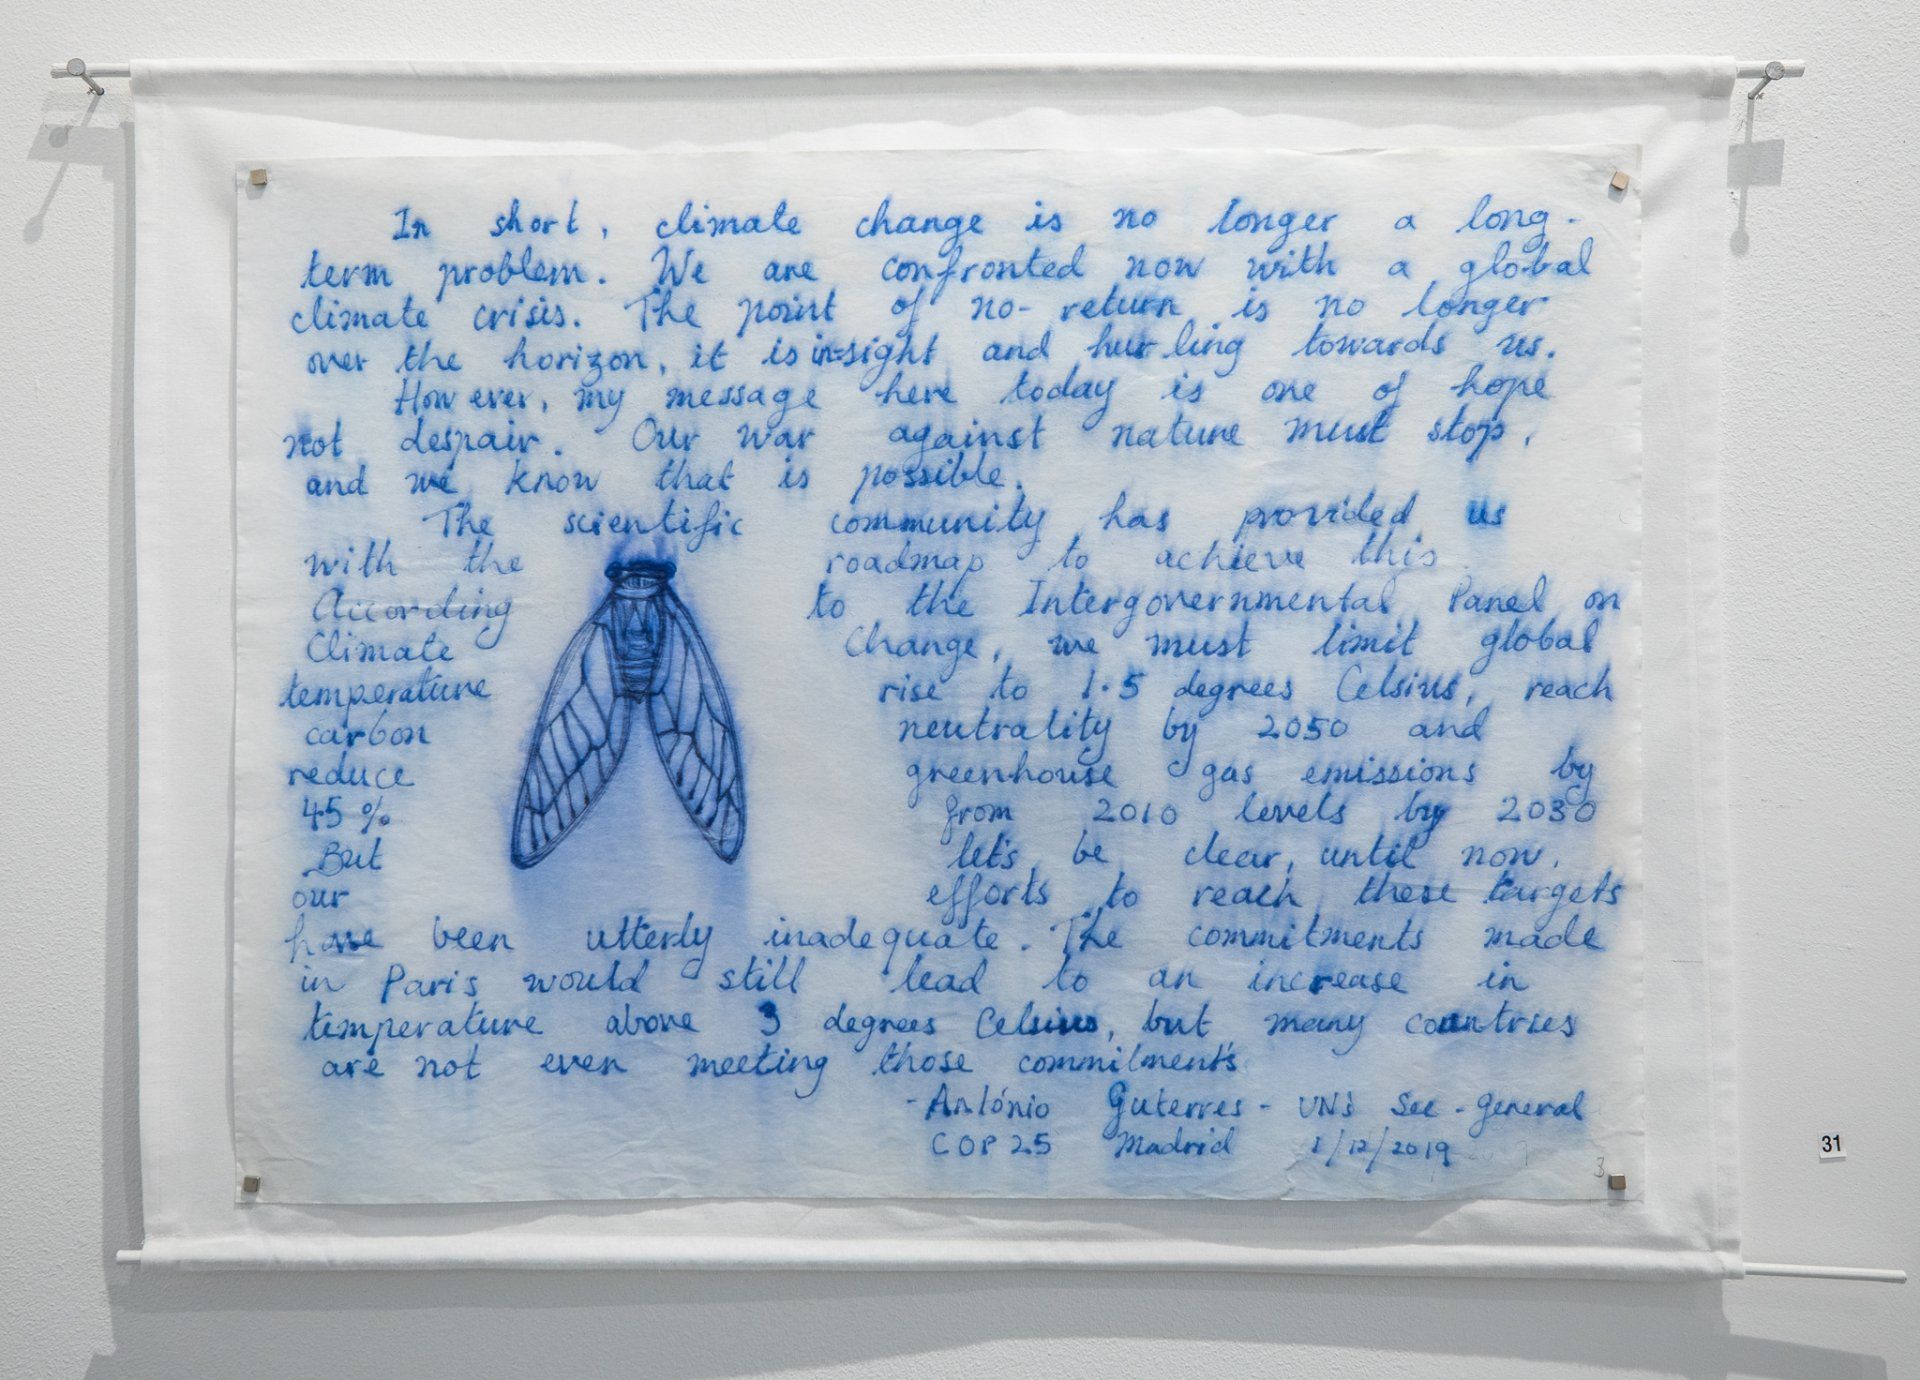 In short, climate change is no longer a long-
term problem. We are confronted now with a global
climate crisis. The point of no-return is no longer
over the horizon, it is in-sight and hurling towards us.
However, my message here today is one of hope
not despair. Our war against nature must stop,
and we know that is possible.
The scientific community has provided us
with the roadmap to achieve this
According to the Intergovernmental Panel on
Climate Change, we must limit global
temperature rise to 1.5 degrees Celsius, reach
carbon neutrality by 2050 and
reduce greenhouse gas emissions by
45% from 2010 levels by 2030
But let's be clear, until now,
our efforts to reach these targets
have been utterly inadequate. The commitments made
in Paris would still lead to an increase in
temperature above 3 degrees Celsius, but many countries
are not even meeting those commitments
- António Guterres - UN's Sec-General
COP 25 Madrid 1/12/2019
3
31